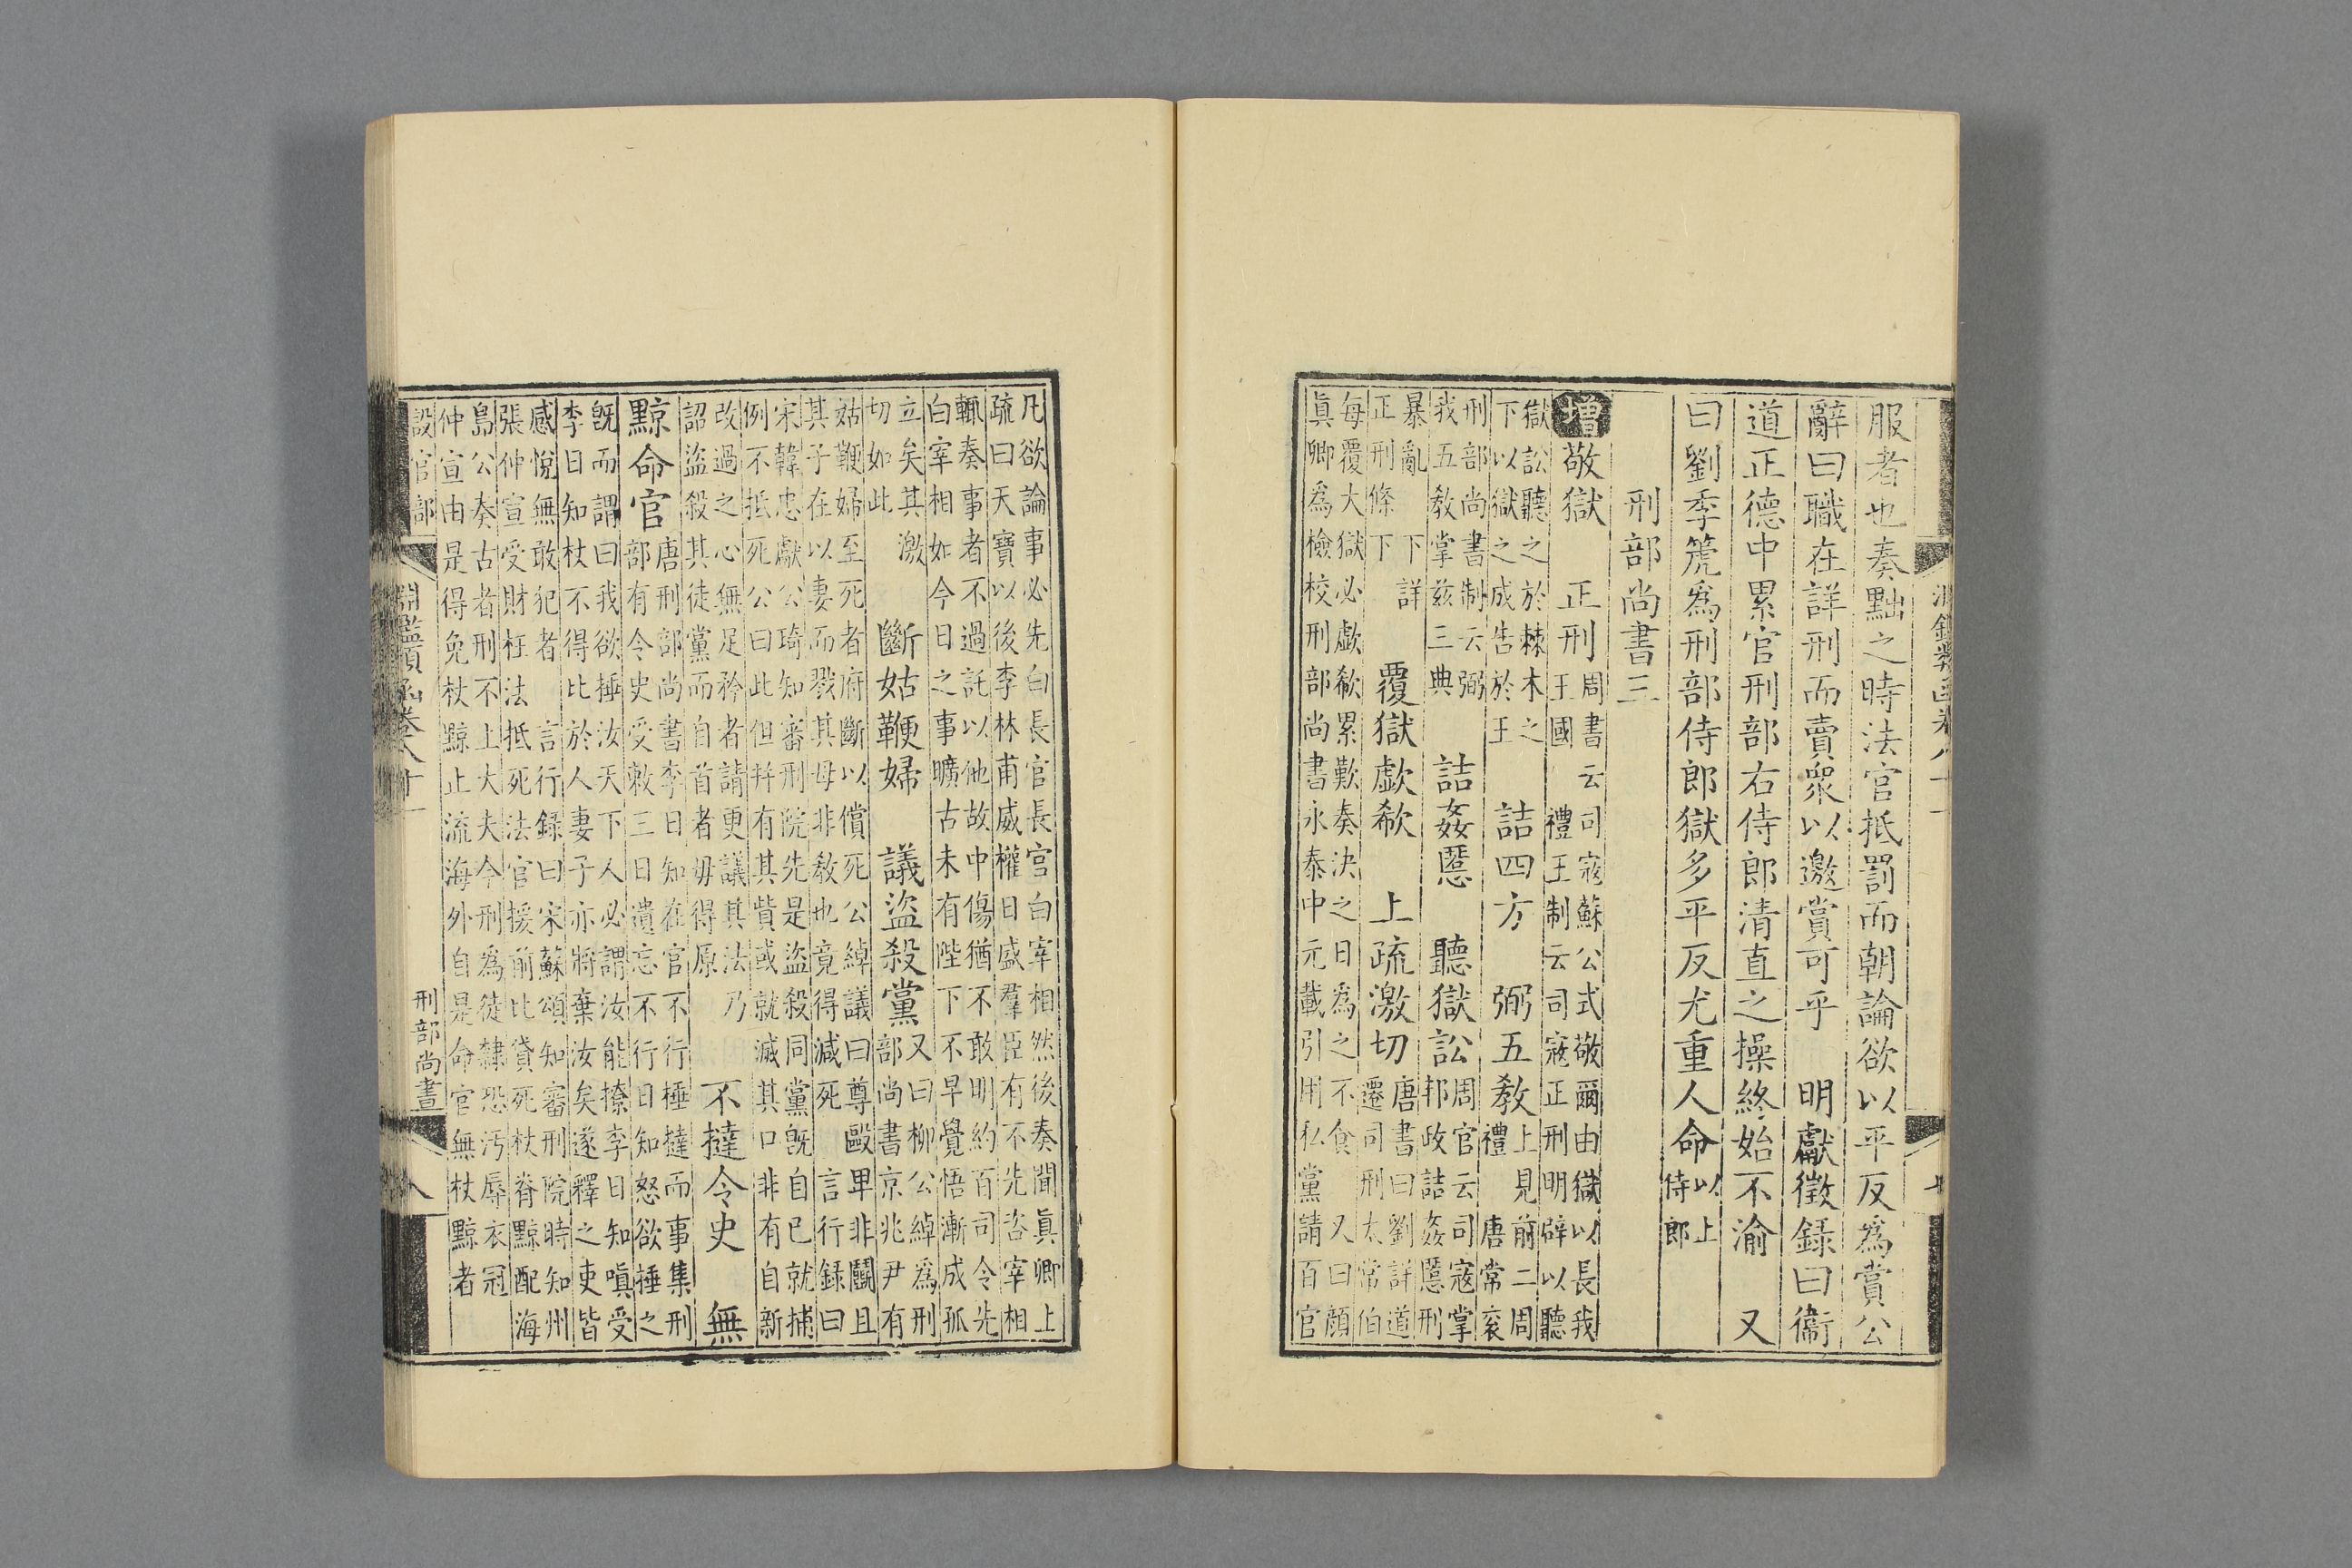 服者也奏黜之時法官抵罰而朝論欲以平反為賞公
辭曰職在詳刑而賣衆以邀賞可乎　明獻徵錄曰衞
道正德中累官刑部右侍郎清直之操終始不渝　又
曰劉季箎為刑部侍郎獄多平反尤重人命以上侍郎
刑部尚書三
增敬獄　正刑周書云司寇蘇公式敬爾由獄以長我王國　禮王制云司寇正刑明辟以聽
獄訟聽之於棘木之下以獄之成告於王　詰四方　弼五教上見前二周禮　唐常袞
刑部尚書制云弼我五教掌兹三典　詰姦慝　聽獄訟周官云司寇掌邦政詰姦慝刑
暴亂　下詳正刑條下　覆獄歔欷　上疏激切唐書曰劉詳道遷司刑太常伯
每覆大獄必歔欷累歎奏決之日為之不食　又曰顏
真卿為檢校刑部尚書永泰中元載引用私黨請百官
凡欲論事必先白長官長官白宰相然後奏聞真卿上
疏曰天寶以後李林甫威權日盛羣臣有不先咨宰相
輒奏事者不過託以他故中傷猶不敢明約百司令先
白宰相如今日之事曠古未有陛下不早覺悟漸成孤
立矣其激切如此　斷姑鞭婦　議盜殺黨又曰柳公綽為刑部尚書京兆尹有
姑鞭婦至死者府斷以償死公綽議曰尊毆卑非鬭且
其子在以妻而戮其母非教也竟得減死　言行録曰
宋韓忠獻公琦知審刑院先是盜殺同黨既自已就捕
例不抵死公曰此但幷有其貲或就滅其口非有自新
改過之心無足矜者請更議其法乃詔盜殺其徒黨而自首者毋得原　不撻令史　無
黥命官唐刑部尚書李日知在官不行捶撻而事集刑部有令史受敕三日遺忘不行日知怒欲捶之
既而謂曰我欲捶汝天下人必謂汝能撩李日知嗔受
李日知杖不得比於人妻子亦將棄汝矣遂釋之吏皆
感悅無敢犯者　言行録曰宋蘇頌知審刑院時知州
張仲宣受財枉法抵死法官援前比貸死杖脊黥配海
島公奏古者刑不上大夫今刑為徒隸恐汚辱衣冠
仲宣由是得免杖黥止流海外自是命官無杖黥者
設官部　淵鑑類函卷八十一　刑部尚書　八